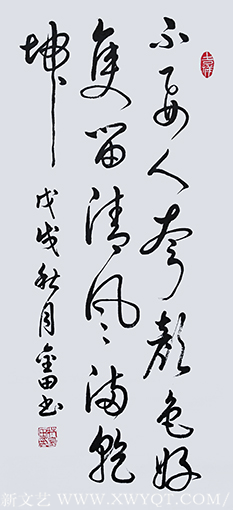 不要人夸颜色好
隻留清氣满乾
坤
戊戌秋月金田书
新文艺 WWW.XWYQT.COM